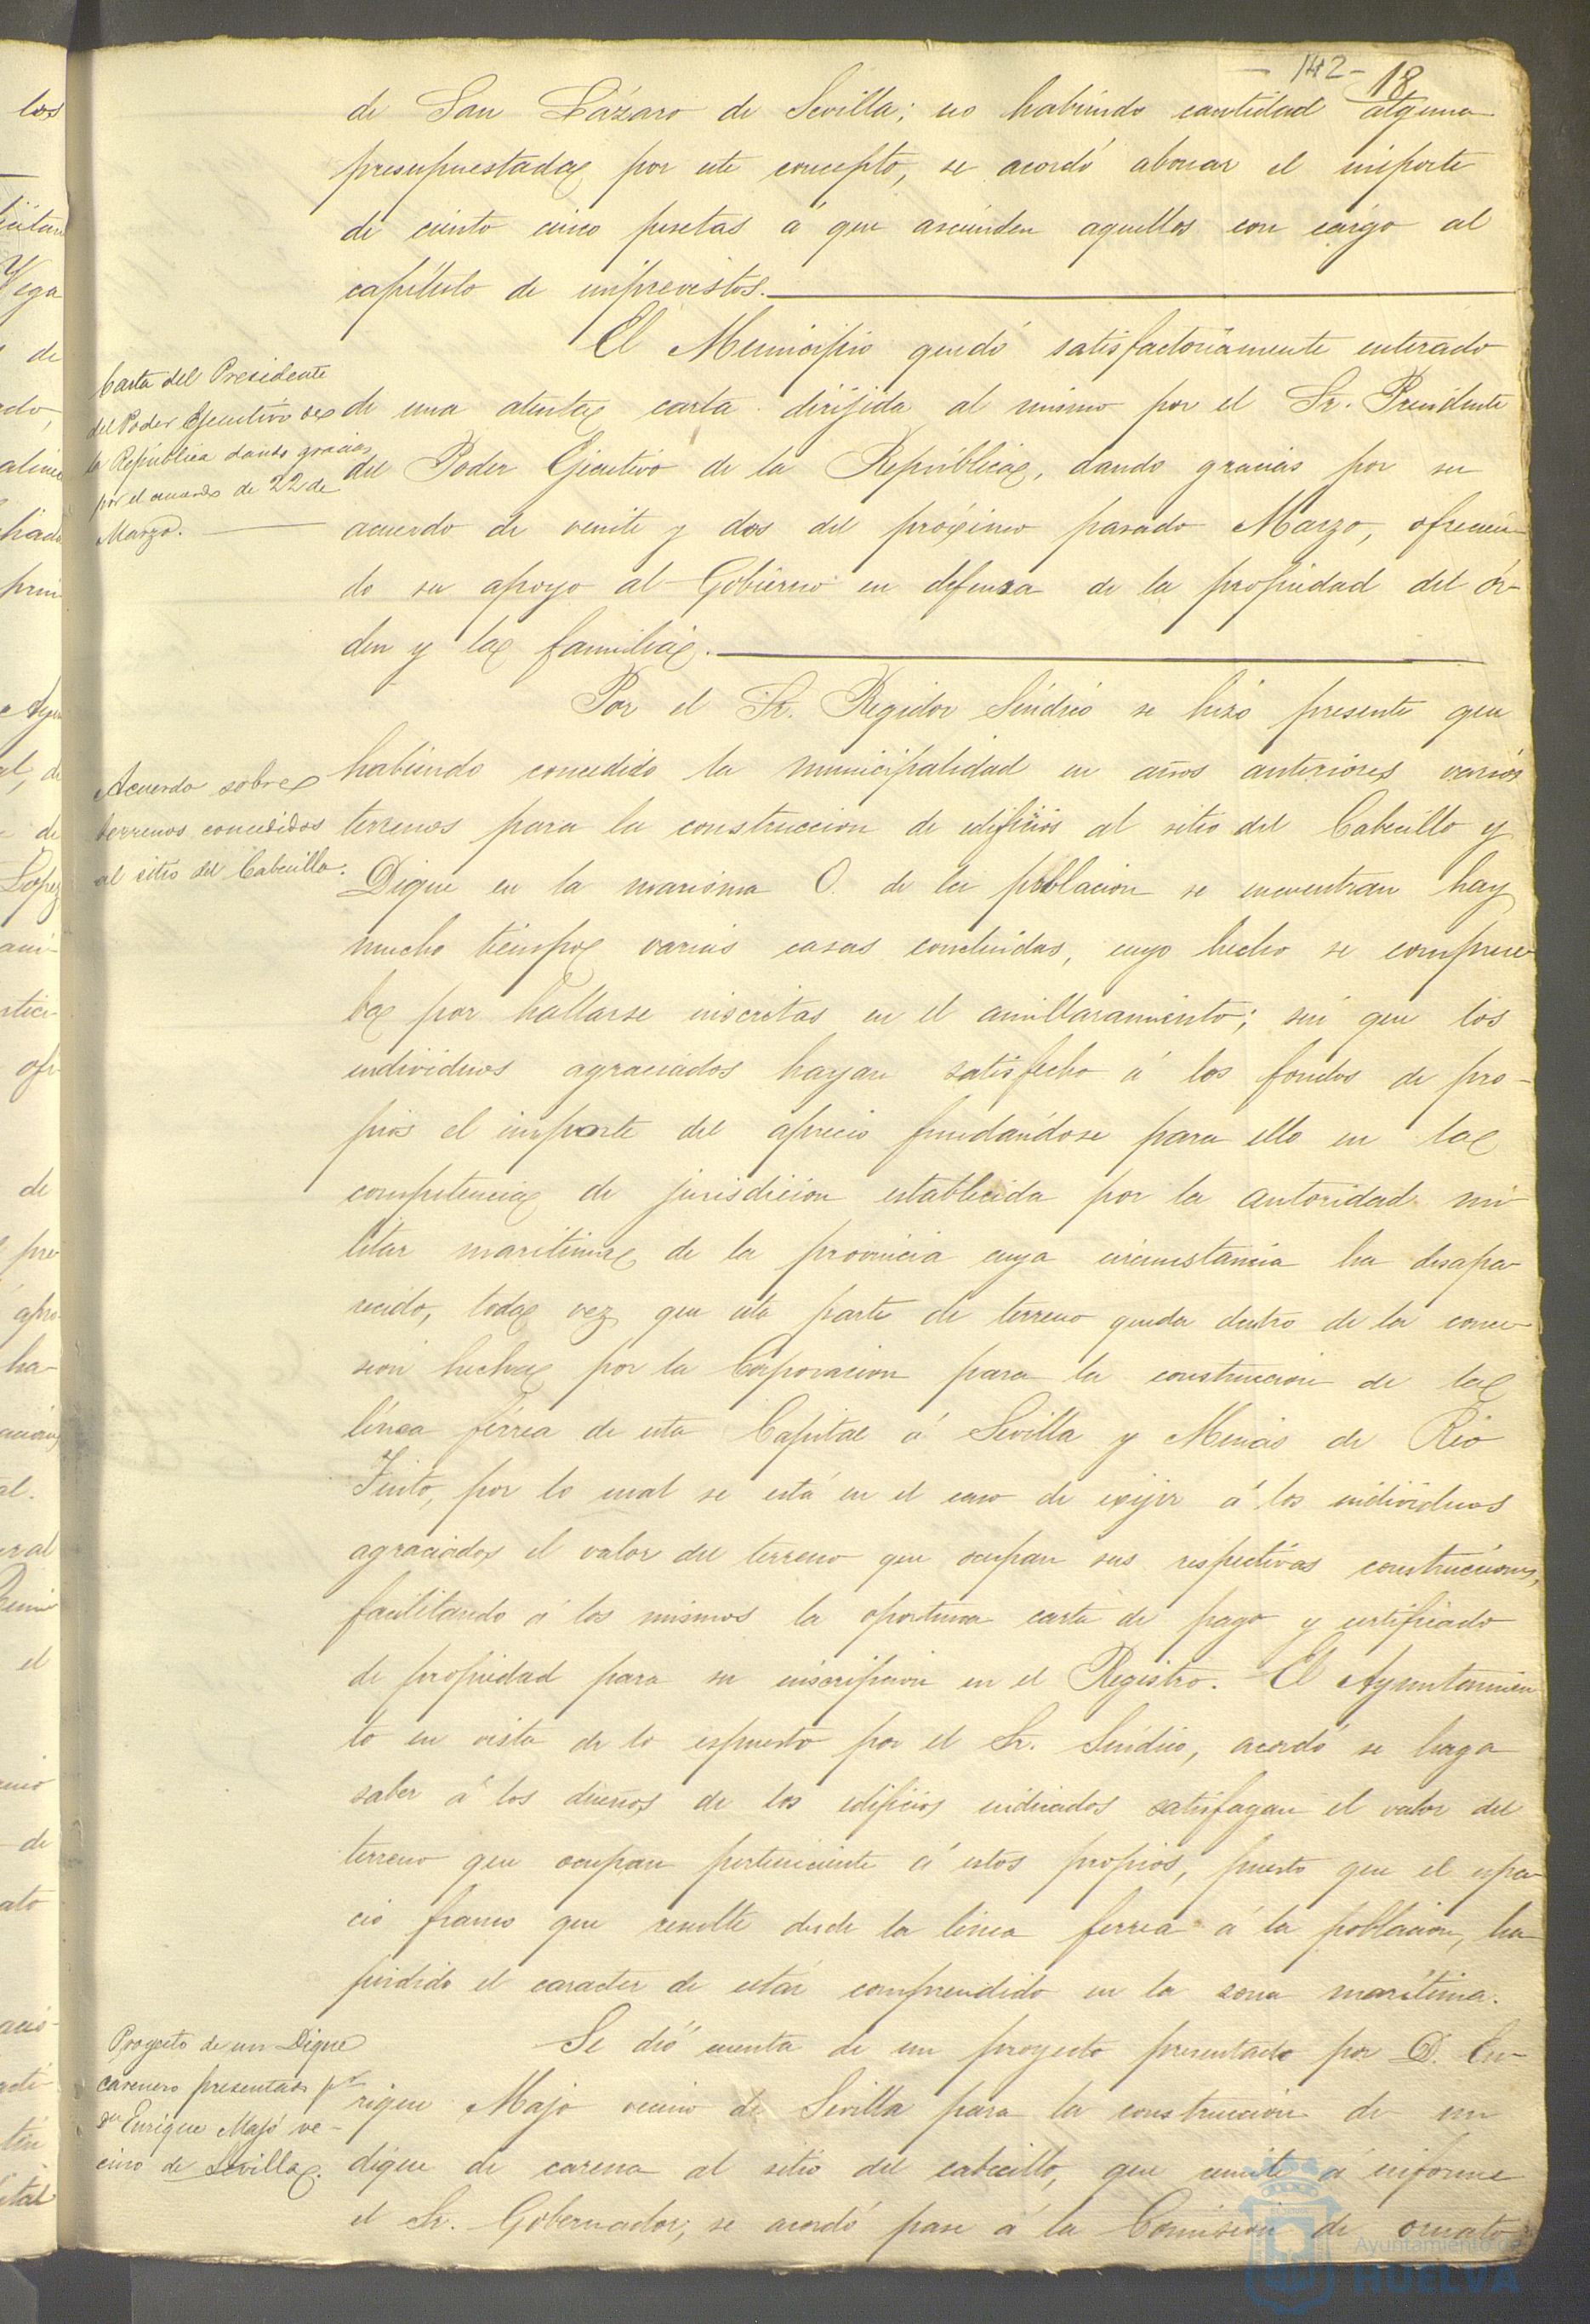 - 142 -
18
de San Lázaro de Sevilla; no habiendo cantidad alguna
presupuestada por este concepto, se acordó abonar el importe
de ciento cinco pesetas á que ascienden aquellos con cargo al
capítulo de imprevistos.
Carta del Presidente
del Poder Ejecutivo de
la República dando gracias
por el acuerdo de 22 de
Marzo.
El Municipio quedó satisfactoriamente enterado
de una atenta carta dirijida al mismo por el Sr. Presidente
del Poder Ejecutivo de la República, dando gracias por su
acuerdo de veinte y dos del próximo pasado Marzo, ofrecien-
do su apoyo al Gobierno en defensa de la propiedad del ór-
den y la familia.
Acuerdo sobre
terrenos concedidos
al sitio del Cabecillo.
Por el Sr. Regidor Síndico se hizo presente que
habiendo concedido la municipalidad en años anteriores varios
terrenos para la construccion de edificios al sitio del Cabecillo y
Dique en la marisma O. de la poblacion se encuentran hay
mucho tiempo varias casas concluidas, cuyo hecho se comprue-
ba por hallarse inscritas en el amillaramiento; sin que los
individuos agraciados hayan satisfecho á los fondos de pro-
pios el importe del aprecio fundándose para ello en la
competencia de jurisdicion establecida por la autoridad mi
litar maritima de la provincia cuya circunstancia ha desapa-
recido, toda vez que esta parte de terreno queda dentro de la conce-
sion hecha por la Corporacion para la construccion de la
línea férrea de esta Capital á Sevilla y Minas de Rio
Tinto, por lo cual se está en el caso de exijir á los individuos
agraciados el valor del terreno que ocupan sus respectivas construcciones,
facilitando á los mismos la oportuna carta de pago y certificado
de propiedad para su inscripcion en el Registro. El Ayuntamien
to en vista de lo espuesto por el Sr. Síndico, acordó se haga
saber á los dueños de los edificios indicados satisfagan el valor del
terreno que ocupan perteneciente á estos propios, puesto que el espa-
cio franco que resulte desde la linea ferrea á la poblacion, ha
perdido el caracter de estar comprendido en la zona marítima.
Proyecto de un Dique
carenero presentado pr
dn Enrique Majó ve-
cino de Sevilla.
Se dió cuenta de un proyecto presentado por D. En-
rique Majó vecino de Sevilla para la construccion de un
dique de carena al sitio del cabecillo, que remite á informe
el Sr. Gobernador; se acordó pase á la Comision de ornato
Ayuntamiento de
HUELVA